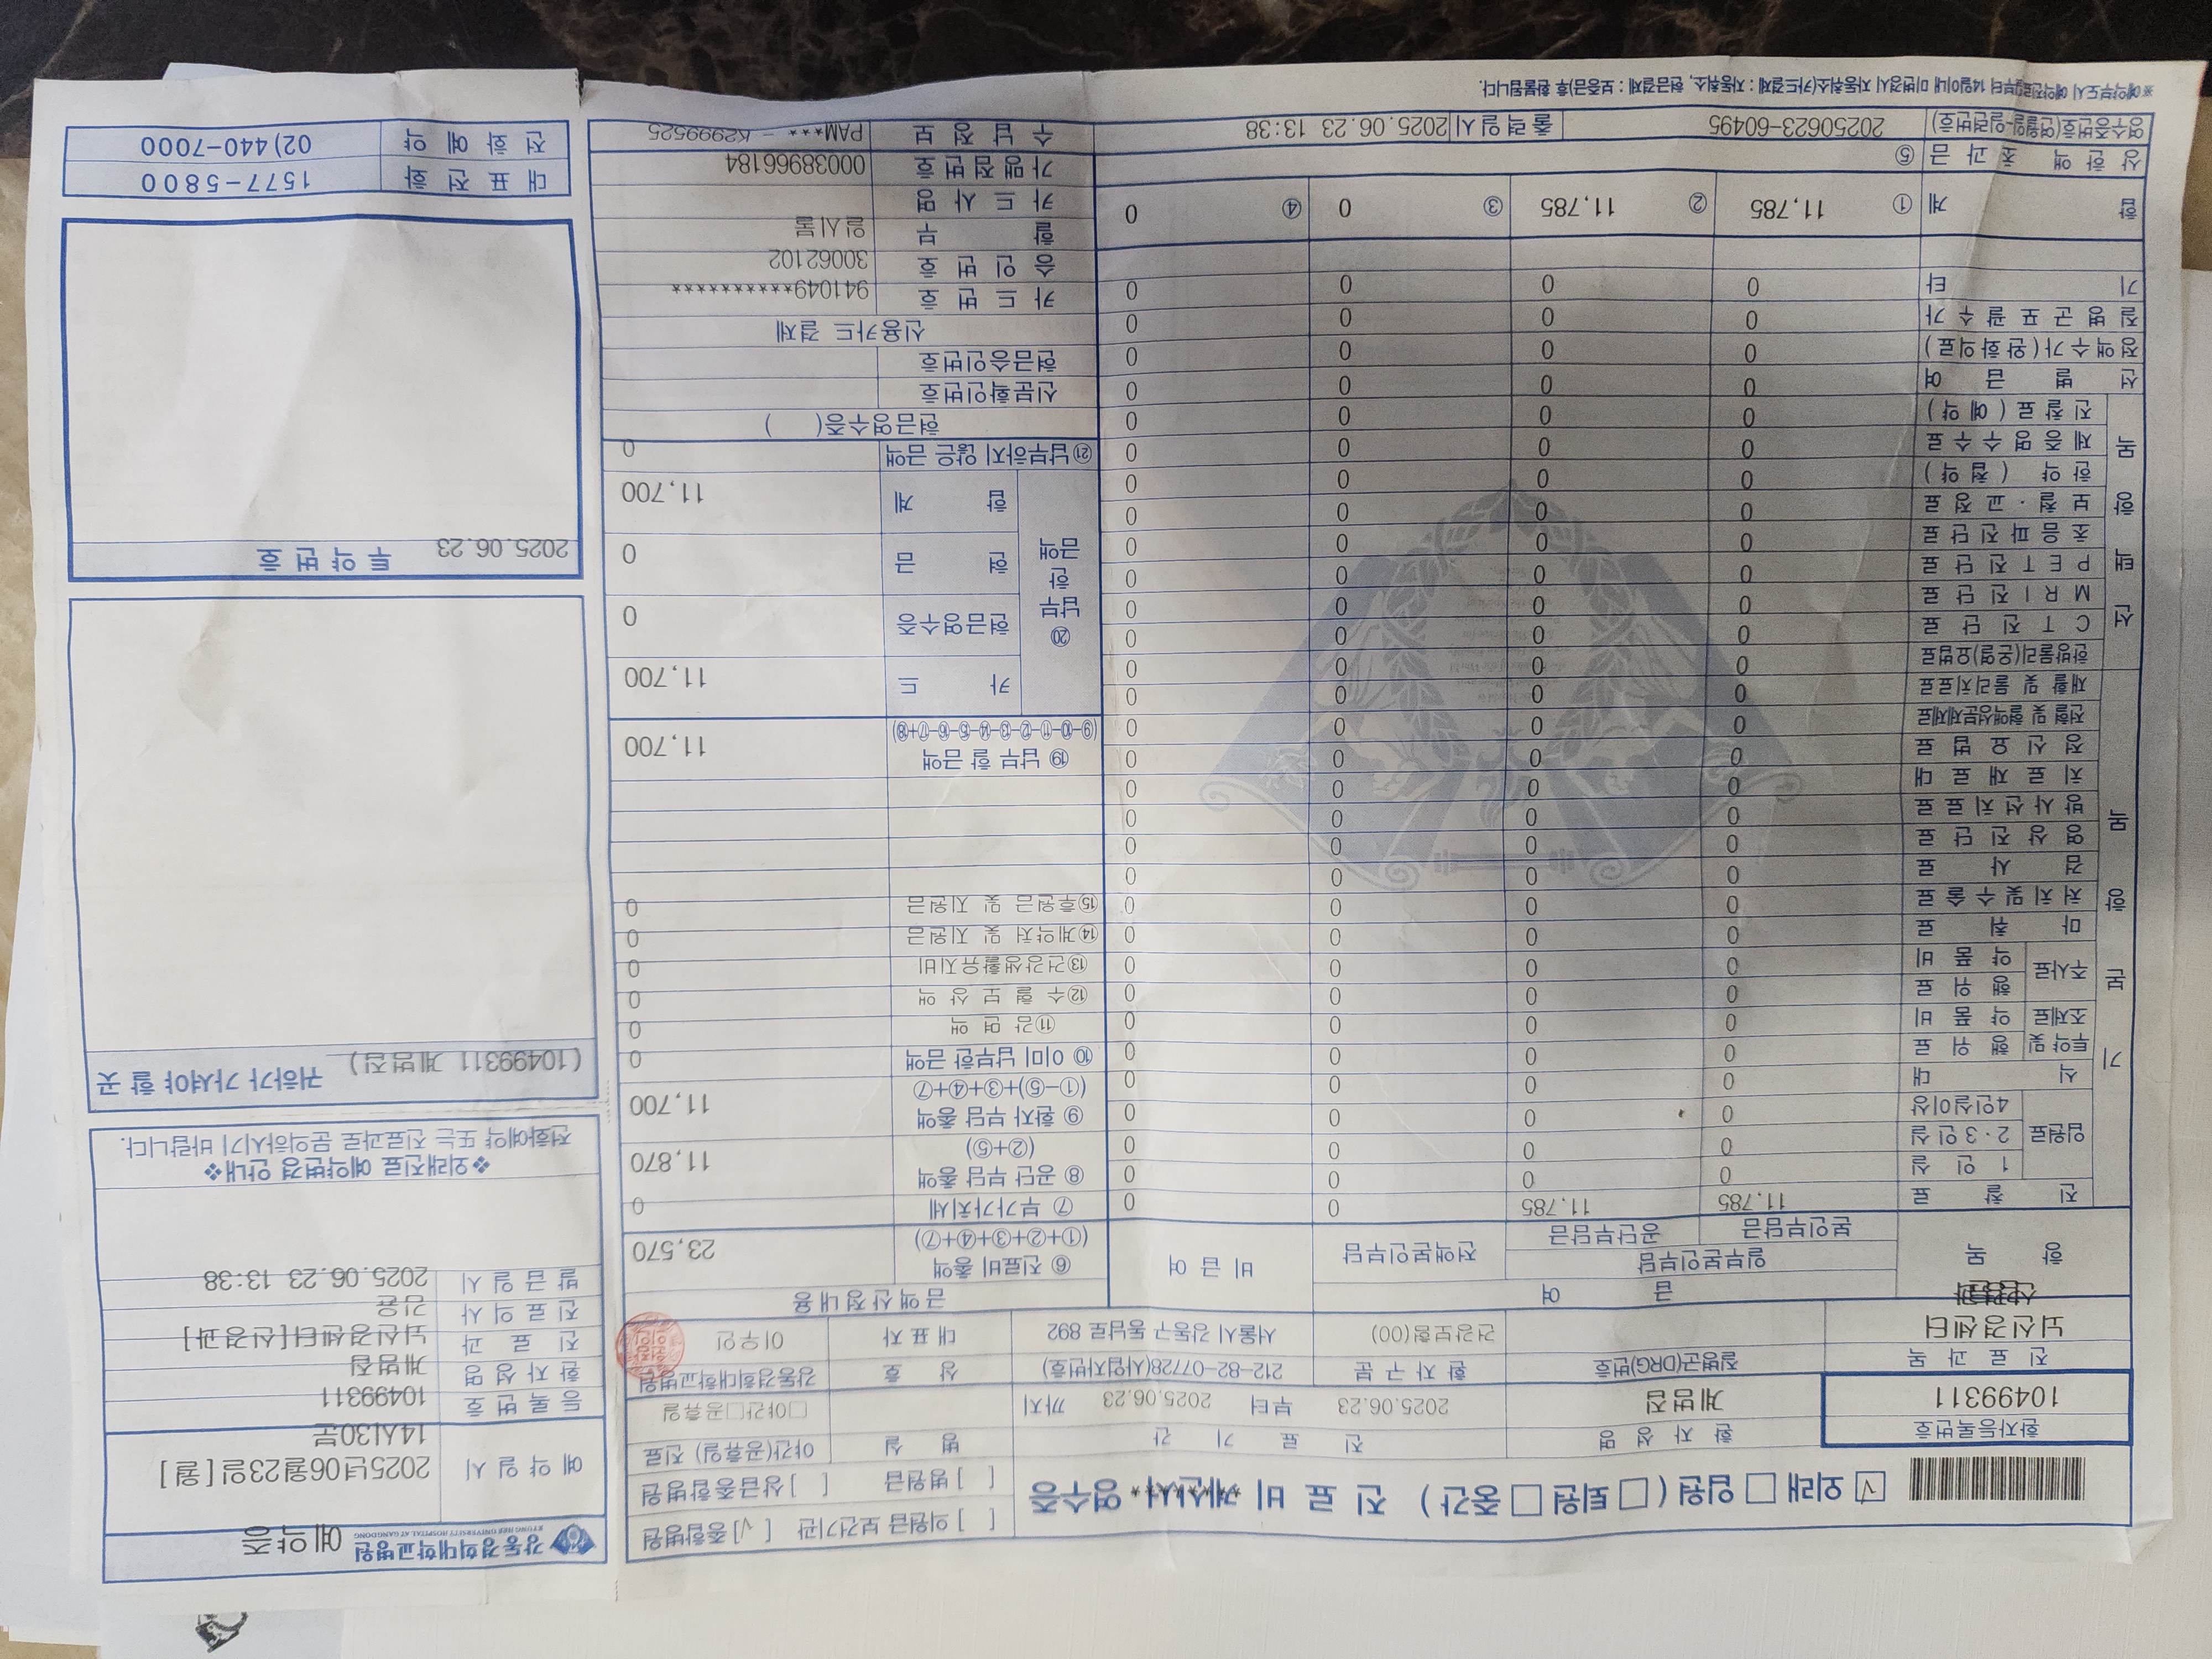 [√] 외래 [ ] 입원 ( [ ] 퇴원 [ ] 중간 ) 진 료 비 영수증
[ ] 의원급 보건기관 [√] 종합병원
[ ] 병원급 [ ] 상급종합병원
환자등록번호 환 자 성 명 진 료 기 간 병 실 야간(공휴일) 진료
10499311 계범집 2025.06.23 부터 2025.06.23 까지 □야간□공휴일
진 료 과 목 질병군(DRG)번호 환 자 구 분 212-82-07728(사업자번호) 상 호 강동경희대학교병원
뇌신경센터 건강보험(00) 서울시 강동구 동남로 892 대 표 자 이우인
항 목 급 여 비 급 여 금 액 산 정 내 용
일부본인부담 전액본인부담
본인부담금 공단부담금
진 찰 료 11,785 11,785 0 0
입원료 1 인 실 0 0 0 0
2·3 인 실 0 0 0 0
4인실이상 0 0 0 0
식 대 0 0 0 0
투약 및 조제료 행 위 료 0 0 0 0
약 품 비 0 0 0 0
주사료 행 위 료 0 0 0 0
약 품 비 0 0 0 0
마 취 료 0 0 0 0
처 치 및 수 술 료 0 0 0 0
검 사 료 0 0 0 0
영 상 진 단 료 0 0 0 0
방 사 선 치 료 료 0 0 0 0
치 료 재 료 대 0 0 0 0
정 신 요 법 료 0 0 0 0
전혈 및 혈액성분제제료 0 0 0 0
재활 및 물리치료료 0 0 0 0
한방물리(온열)요법료 0 0 0 0
C T 진 단 료 0 0 0 0
M R I 진 단 료 0 0 0 0
P E T 진 단 료 0 0 0 0
초 음 파 진 단 료 0 0 0 0
보 철 · 교 정 료 0 0 0 0
한 약 ( 첩 약 ) 0 0 0 0
제 증 명 수 수 료 0 0 0 0
진 찰 료 ( 예 약 ) 0 0 0 0
선 별 급 여 0 0 0 0
정 액 수 가 ( 완 화 의 료 ) 0 0 0 0
질 병 군 포 괄 수 가 0 0 0 0
기 타 0 0 0 0
합 계 ① 11,785 ② 11,785 ③ 0 ④ 0
상 한 액 초 과 금 ⑤
영수증번호(연월일-일련번호) 20250623-60495 출 력 일 시 2025.06.23 13:38
※예약부도시 예약진료일부터 14일이내 미변경시 자동취소(카드결제 : 자동취소, 현금결제 : 보증금)후 환불됩니다.
기 본 항 목
선 택 항 목
⑥ 진료비 총액 (①+②+③+④+⑦) 23,570
⑦ 부가가치세 0
⑧ 공단 부담 총액 (②+⑤) 11,870
⑨ 환자 부담 총액 (①-⑤)+③+④+⑦ 11,700
⑩ 이미 납부한 금액 0
⑪감 면 액 0
⑫수 혈 보 상 액 0
⑬건강생활유지비 0
⑭계약처 및 지원금 0
⑮후원금 및 지원금 0
⑲ 납부 할 금액 (⑨-⑩-⑪-⑫-⑬-⑭-⑮-⑯-⑰+⑱) 11,700
⑳ 납부한 금액 카 드 11,700
현금영수증 0
현 금 0
합 계 11,700
㉑납부하지 않은 금액 0
현금영수증( )
신분확인번호
현금승인번호
신용카드 결제
카 드 번 호 941049**********
승 인 번 호 30062102
할 부 일시불
카 드 사 명
가 맹 점 번 호 00038966184
수 납 정 보 PAM*** - K2999525
강동경희대학교병원 예약증
KYUNG HEE UNIVERSITY HOSPITAL AT GANGDONG
예 약 일 시 2025년06월23일[월]
14시30분
등 록 번 호 10499311
환 자 성 명 계범집
진 료 과 뇌신경센터[신경과]
진 료 의 사 김윤
발 급 일 시 2025.06.23 13:38
❖외래진료 예약변경 안내❖
전화예약 또는 진료과로 문의하시기 바랍니다.
(10499311 계범집) 귀하가 가셔야 할 곳
2025.06.23 투 약 번 호
대 표 전 화 1577-5800
전 화 예 약 02)440-7000